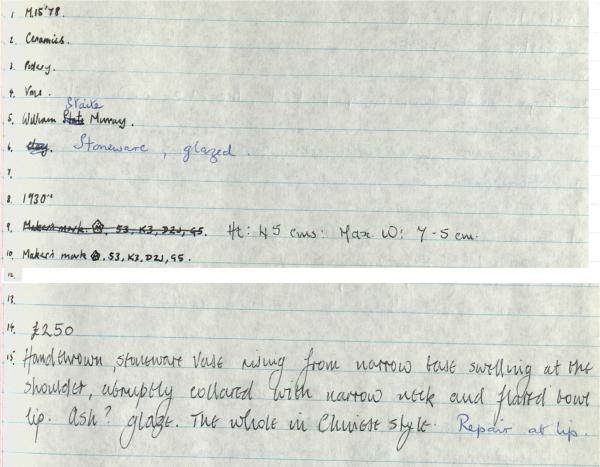 1 M.15'78.
2. Ceramics.
3. Pottery.
4. Vase.
Staite
5. William State Murray.
6. clay. Stoneware, glazed.
7.
8. 1930's
9. Maker's mark. S3, K3, D2J, G5. Ht: 45 cms: Max W: 7-5 cm.
10. Maker's mark . S3, K3, D2J, G5.
12.
13.
14. £250
15. Handthrown, stoneware vase rising from narrow base swelling at the
shoulder, abruptly collared with narrow neck and flared bowl
lip. Ash? glaze. The whole in Chinese style. Repair at lip.